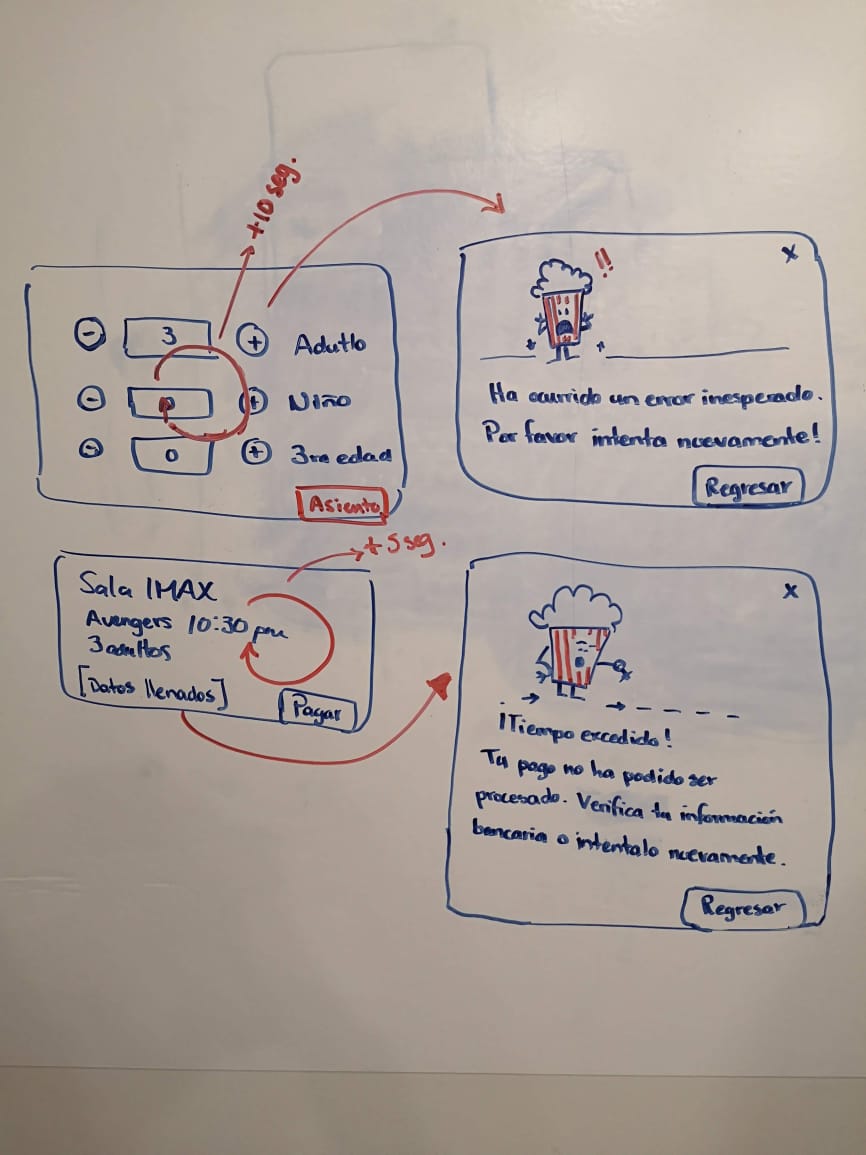 +10 seg.
- 3 + Adutlo
- 0 + Niño
- 0 + 3ra edad
Asiento
x
!!
Ha ocurrido un error inesperado.
Por favor intenta nuevamente!
Regresar
+5seg.
Sala IMAX
Avengers 10:30 pm
3 adultos
[Datos llenados]
Pagar
x
¡Tiempo excedido!
Tu pago no ha podido ser
procesado. Verifica tu información
bancaria o intentalo nuevamente.
Regresar